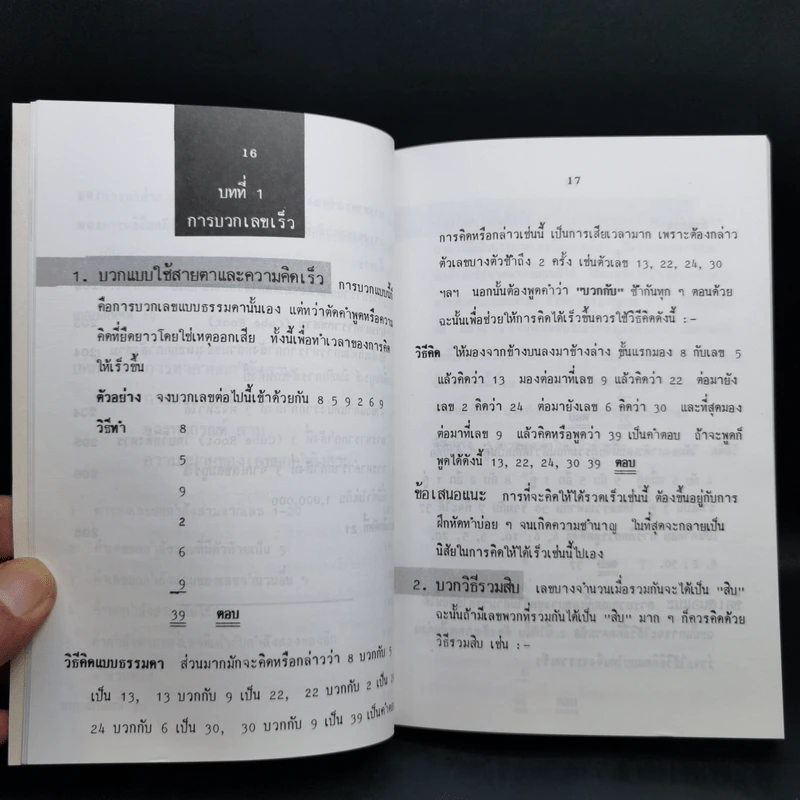 16
บทที่ 1
การบวกเลขเร็ว
1. บวกแบบใช้สายตาและความคิดเร็ว การบวกแบบนี้
คือการบวกเลขแบบธรรมดานั้นเอง แต่ทว่าตัดคำพูดหรือความ
คิดที่ยืดยาวโดยใช่เหตุออกเสีย ทั้งนี้เพื่อทำเวลาของการคิด
ให้เร็วขึ้น
ตัวอย่าง จงบวกเลขต่อไปนี้เข้าด้วยกัน 8 5 9 2 6 9
วิธีทำ 8
5
9
2
6
9
39 ตอบ
วิธีคิดแบบธรรมดา ส่วนมากมักจะคิดหรือกล่าวว่า 8 บวกกับ 5
เป็น 13, 13 บวกกับ 9 เป็น 22, 22 บวกกับ 2 เป็น
24 บวกกับ 6 เป็น 30, 30 บวกกับ 9 เป็น 39
17
การคิดหรือกล่าวเช่นนี้ เป็นการเสียเวลามาก เพราะต้องกล่าว
ตัวเลขบางตัวซ้ำถึง 2 ครั้ง เช่นตัวเลข 13, 22, 24, 30
ฯลฯ นอกนั้นต้องพูดคำว่า "บวกกับ" ซ้ำกันทุก ๆ ตอนด้วย
ฉะนั้นเพื่อช่วยให้การคิดได้เร็วขึ้นควรใช้วิธีคิดดังนี้ :-
วิธีคิด ให้มองจากข้างบนลงมาข้างล่าง ขั้นแรกมอง 8 กับเลข 5
แล้วคิดว่า 13 มองต่อมาที่เลข 9 แล้วคิดว่า 22 ต่อมายัง
เลข 2 คิดว่า 24 ต่อมายังเลข 6 คิดว่า 30 และที่สุดมอง
ต่อมาที่เลข 9 แล้วคิดหรือพูดว่า 39 เป็นคำตอบ ถ้าจะพูดก็
พูดได้ดังนี้ 13, 22, 24, 30 39 ตอบ
ข้อเสนอแนะ การที่จะคิดให้ได้รวดเร็วเช่นนี้ ต้องขึ้นอยู่กับการ
ฝึกหัดทำบ่อย ๆ จนเกิดความชำนาญ ในที่สุดจะกลายเป็น
นิสัยในการคิดให้ได้เร็วเช่นนี้ไปเอง
2. บวกวิธีรวมสิบ เลขบางจำนวนเมื่อรวมกันจะได้เป็น "สิบ"
ฉะนั้นถ้ามีเลขพวกที่รวมกันได้เป็น "สิบ" มาก ๆ ก็ควรคิดด้วย
วิธีรวมสิบ เช่น :-